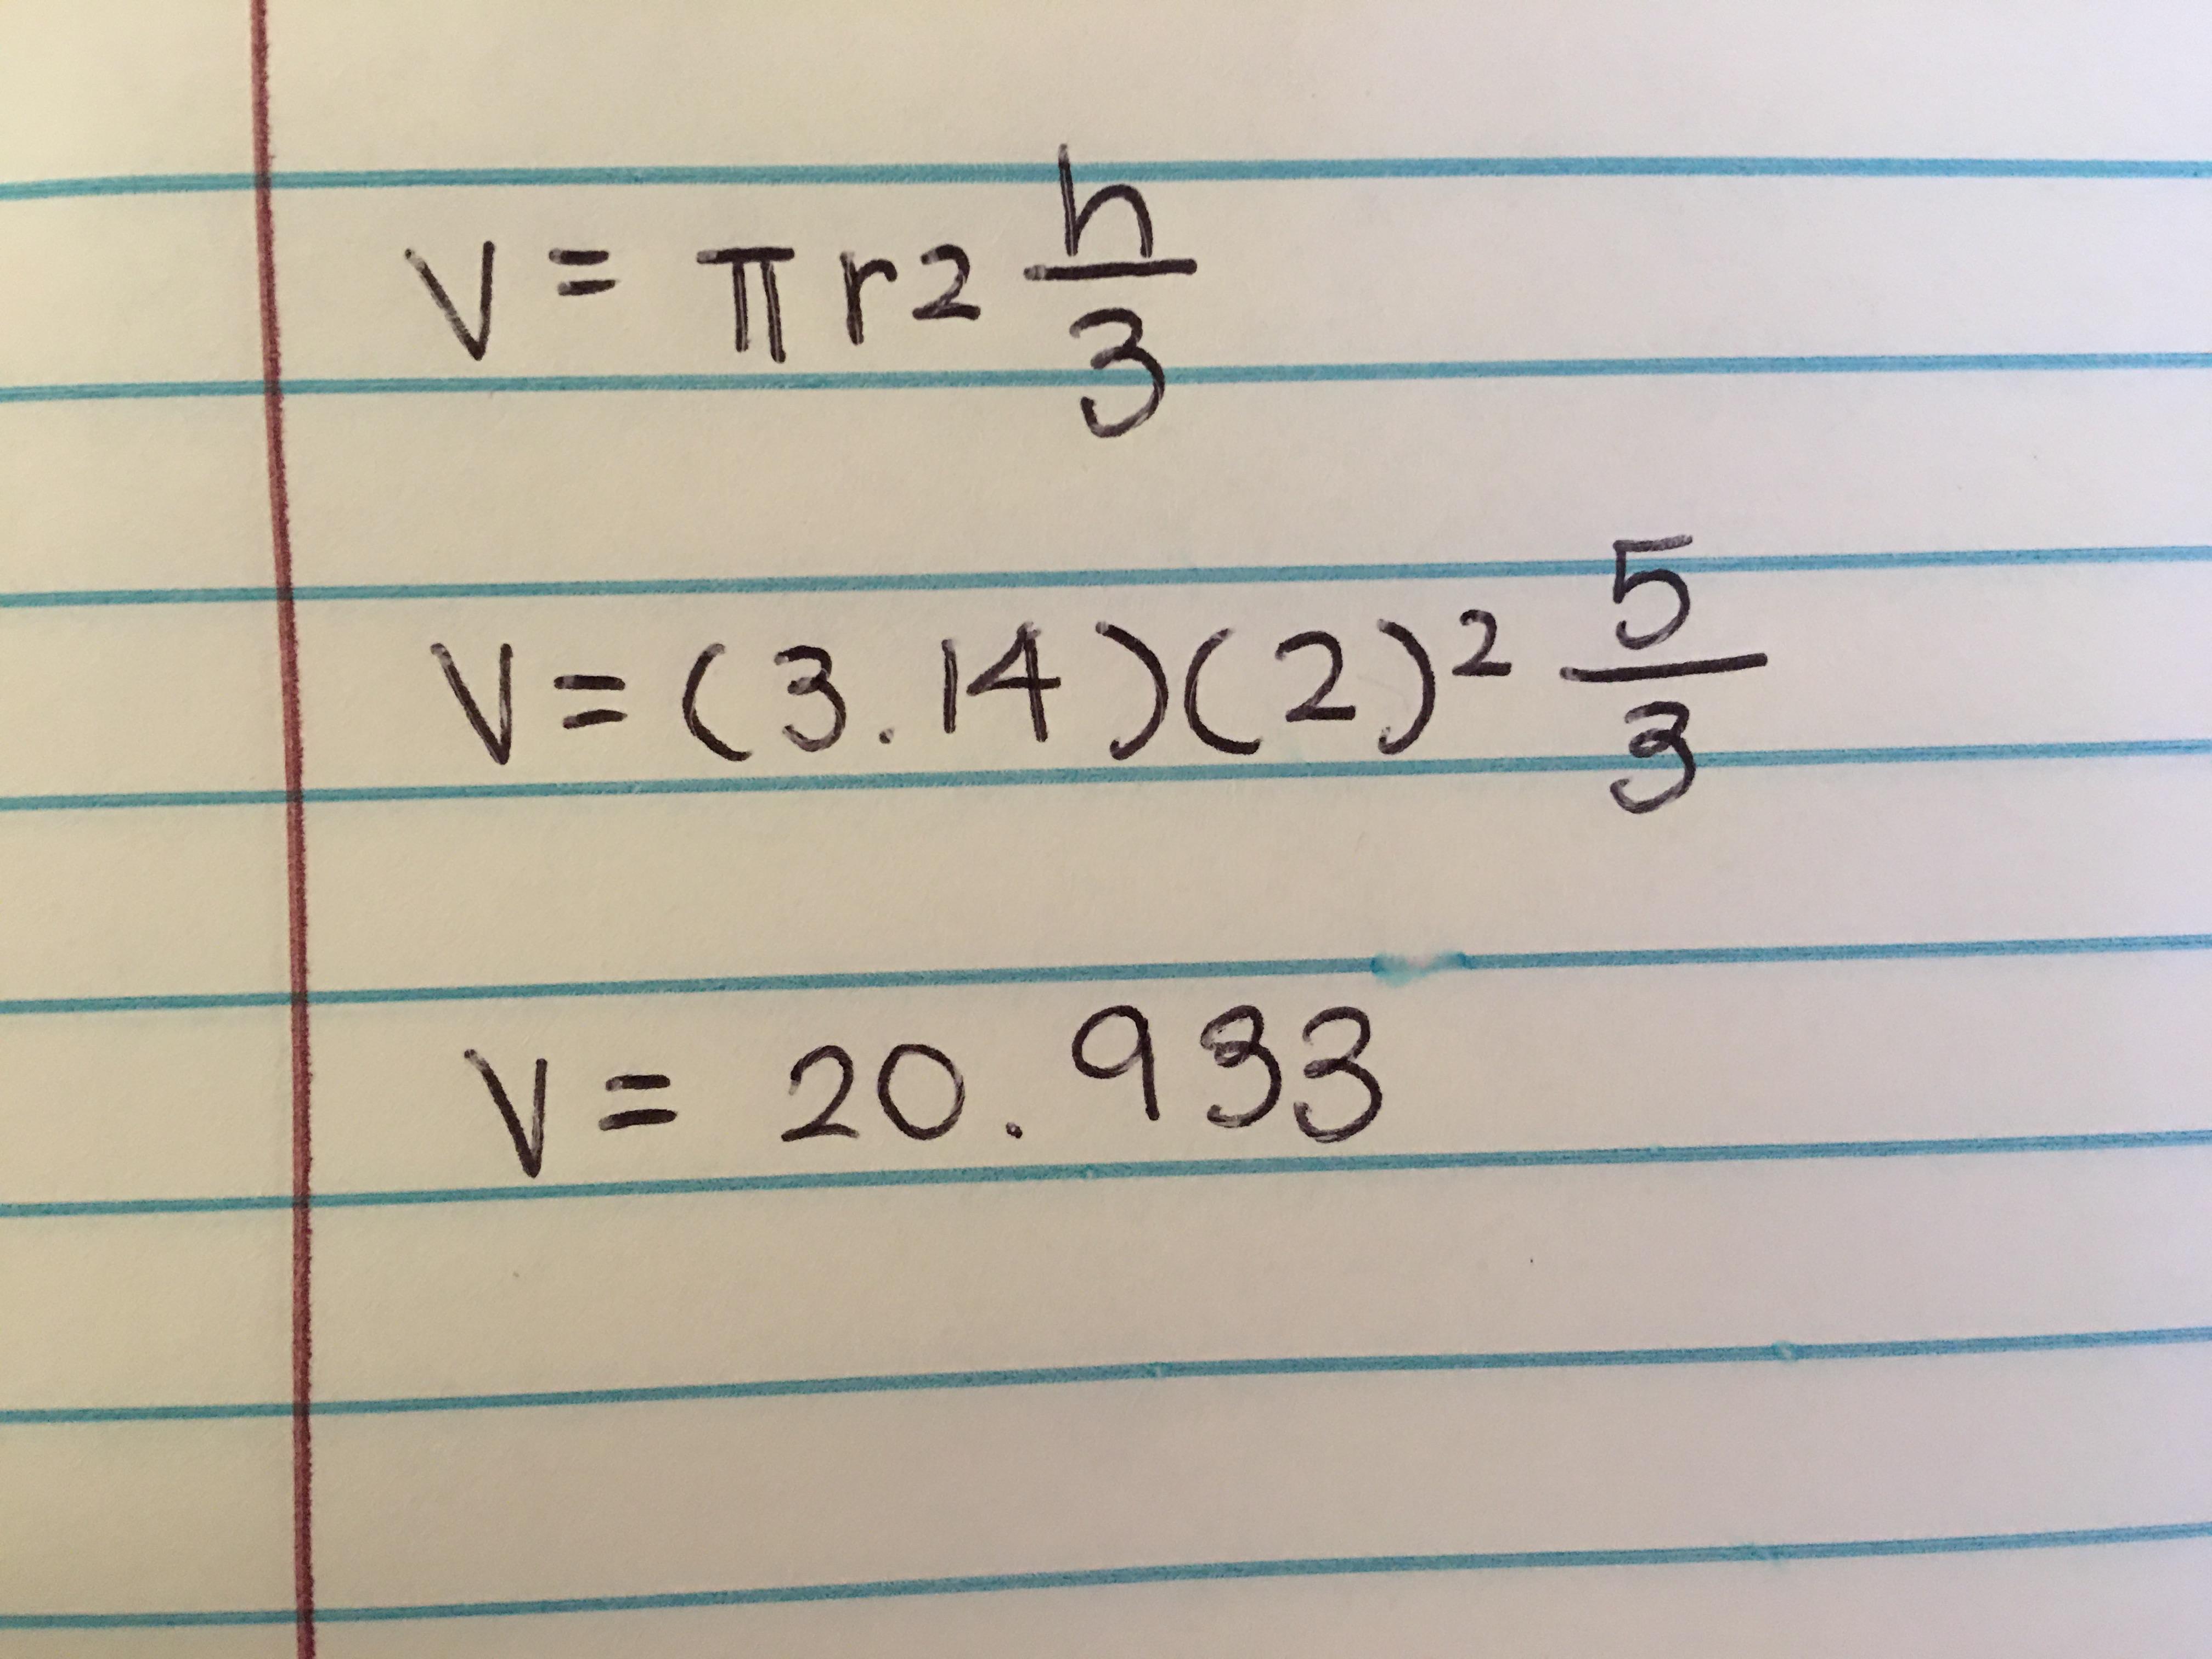 V = π r2 h/3
V = (3.14)(2)² 5/3
V = 20.933